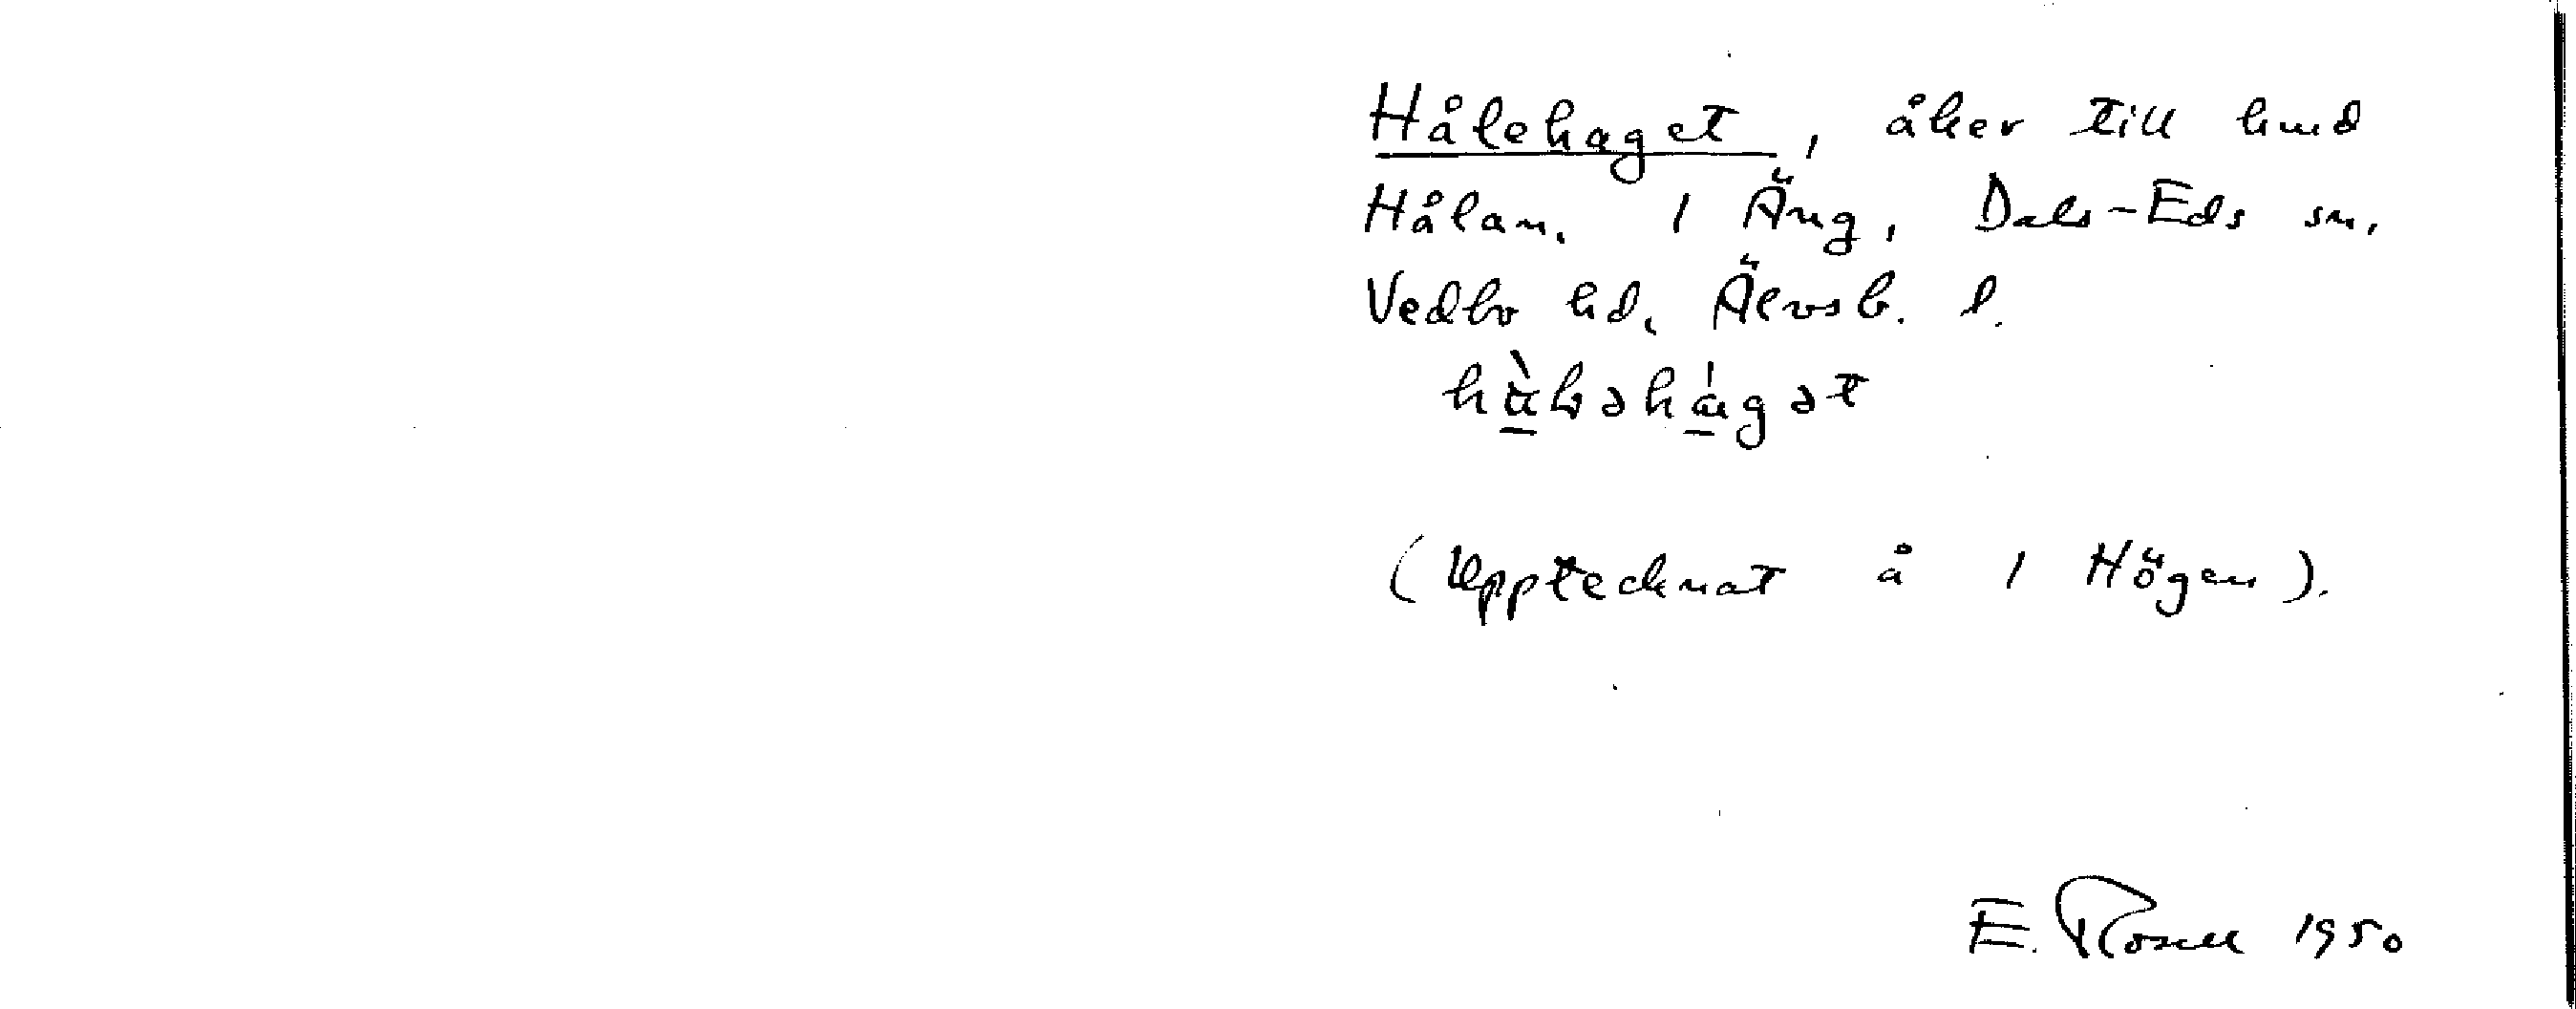 Hålehaget, åker till hmd
Hålan. 1 Äng, Dals-Eds sn.
Vedbo hd. Älvsb. l.
(Upptecknat å 1 Högen).
E. Rosell 1950